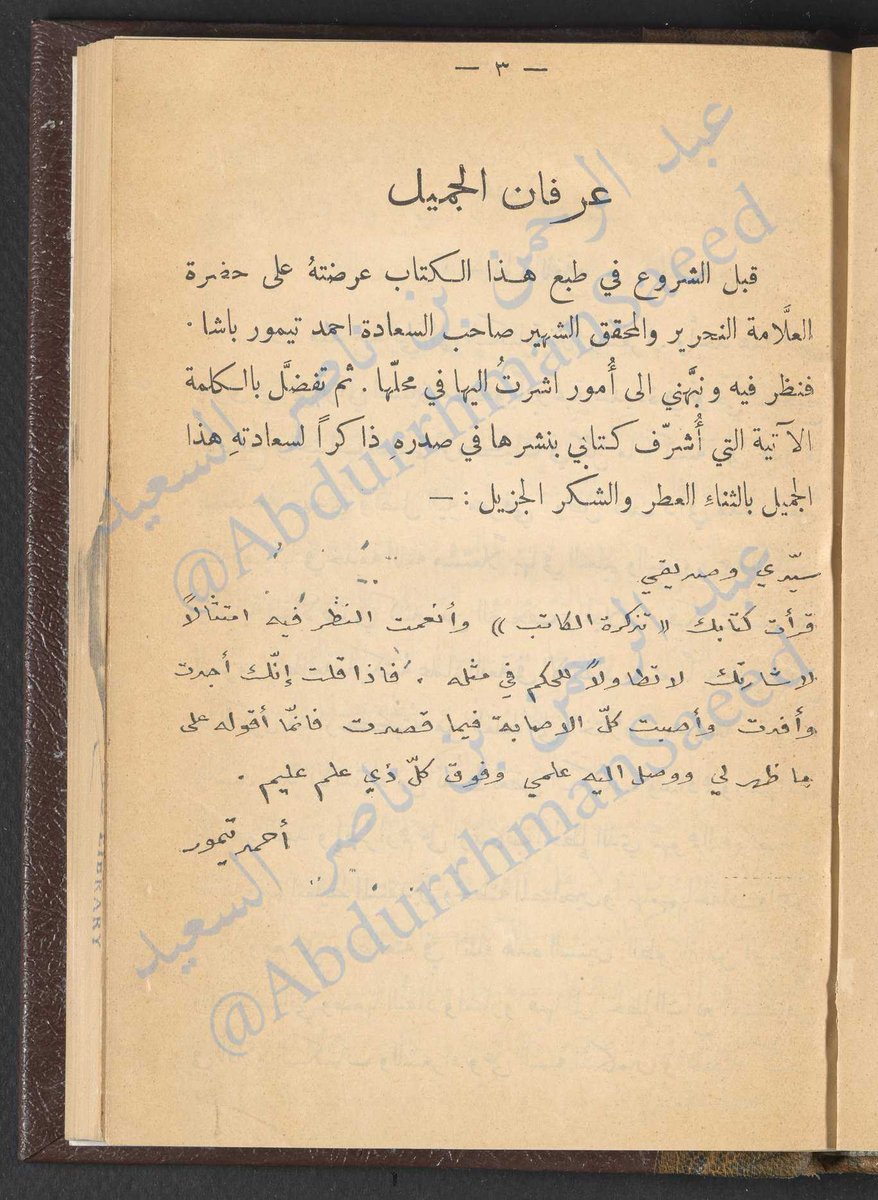 — ٣ —
عرفان الجميل
قبل الشروع في طبع هذا الكتاب عرضتهُ على حضرة
العلَّامة النحرير والمحقق الشهير صاحب السعادة احمد تيمور باشا .
فنظر فيه ونبَّهني الى أُمور اشرتُ اليها في محلّها . ثم تفضَّل بالكلمة
الآتية التي أُشرّف كتابي بنشرها في صدرهِ ذاكراً لسعادتهِ هذا
الجميل بالثناءِ العطر والشكر الجزيل : —
سيّدي وصديقي
قرأت كتابك « تذكرة الكاتب » وأنعمت النظر فيه امتثالاً
لاشارتك لا تطاولاً للحكم في مثله . فاذا قلت إنّك أجدت
وأفدت وأصبت كلّ الاصابة فيما قصدت فانّما أقوله على
ما ظهر لي ووصل اليه علمي وفوق كلّ ذي علم عليم .
أحمد تيمور
LIBRARY
عبد الرحمن بن ناصر السعيد
@AbdurrhmanSaeed
عبد الرحمن بن ناصر السعيد
@AbdurrhmanSaeed